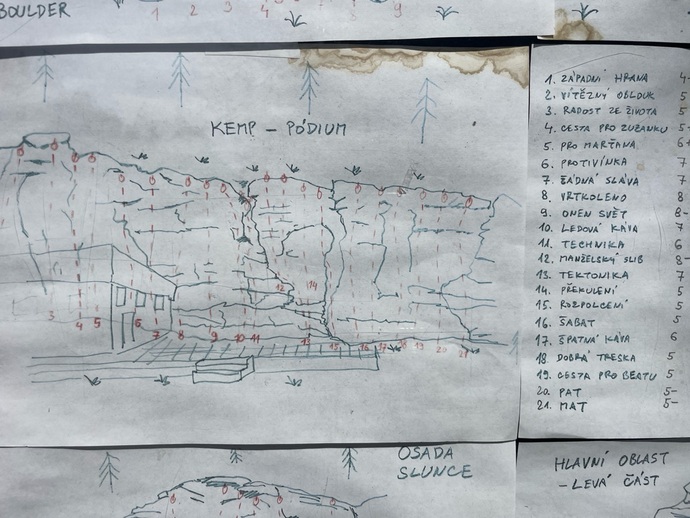 BOULDER
1 2 3 4 8 9
KEMP - PÓDIUM
12 14
3 4 5 6 7 8 9 10 11 13 15 16 17 18 19 20 21
1. ZÁPADNÍ HRANA 4-
2. VÍTĚZNÝ OBLOUK 5
3. RADOST ZE ŽIVOTA 5
4. CESTA PRO ZUZANKU 5-
5. PRO MARŤANA 6+
6. PROTIVÍNKA 7
7. ŽÁDNÁ SLÁVA 7
8. VRTKOLENO 8
9. ONEN SVĚT 8-
10. LEDOVÁ KÁVA 7
11. TECHNIKA 6
12. MANŽELSKÝ SLIB 8-
13. TEKTONIKA 7
14. PŘEKULENÍ 5
15. ROZPOLCENÍ 5
16. ŠABAT 5
17. ŠPATNÁ KÁVA 6
18. DOBRÁ TRESKA 5
19. CESTA PRO BEATU 5
20. PAT 5-
21. MAT 5-
OSADA
SLUNCE
HLAVNÍ OBLAST
- LEVÁ ČÁST